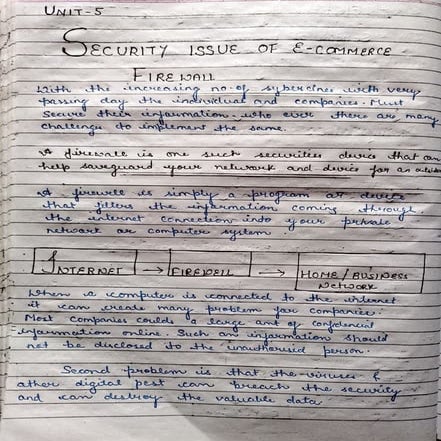 UNIT-5
SECURITY ISSUE OF E-COMMERCE
FIREWALL
With the increasing no. of sybercrimes with very
passing day the individual and companies. Must
Secure their information. who ever there are many
challenge to implement the same.
A firewall is one such securities device that can
help safeguard your network and device for an
A firewall is simply a program or device
that filters the information coming through
the internet connection into your private
network or computer system
INTERNET → FIREWELL → HOME/BUSINESS
NETWORK
When a computer is connected to the internet
it can create many problem for companies.
Most companies a large amt of confidencial
information online. Such an information should
not be disclosed to the person.
Second problem is that the viruses &
other digital pest can breach the security
and can destroy the valuable data